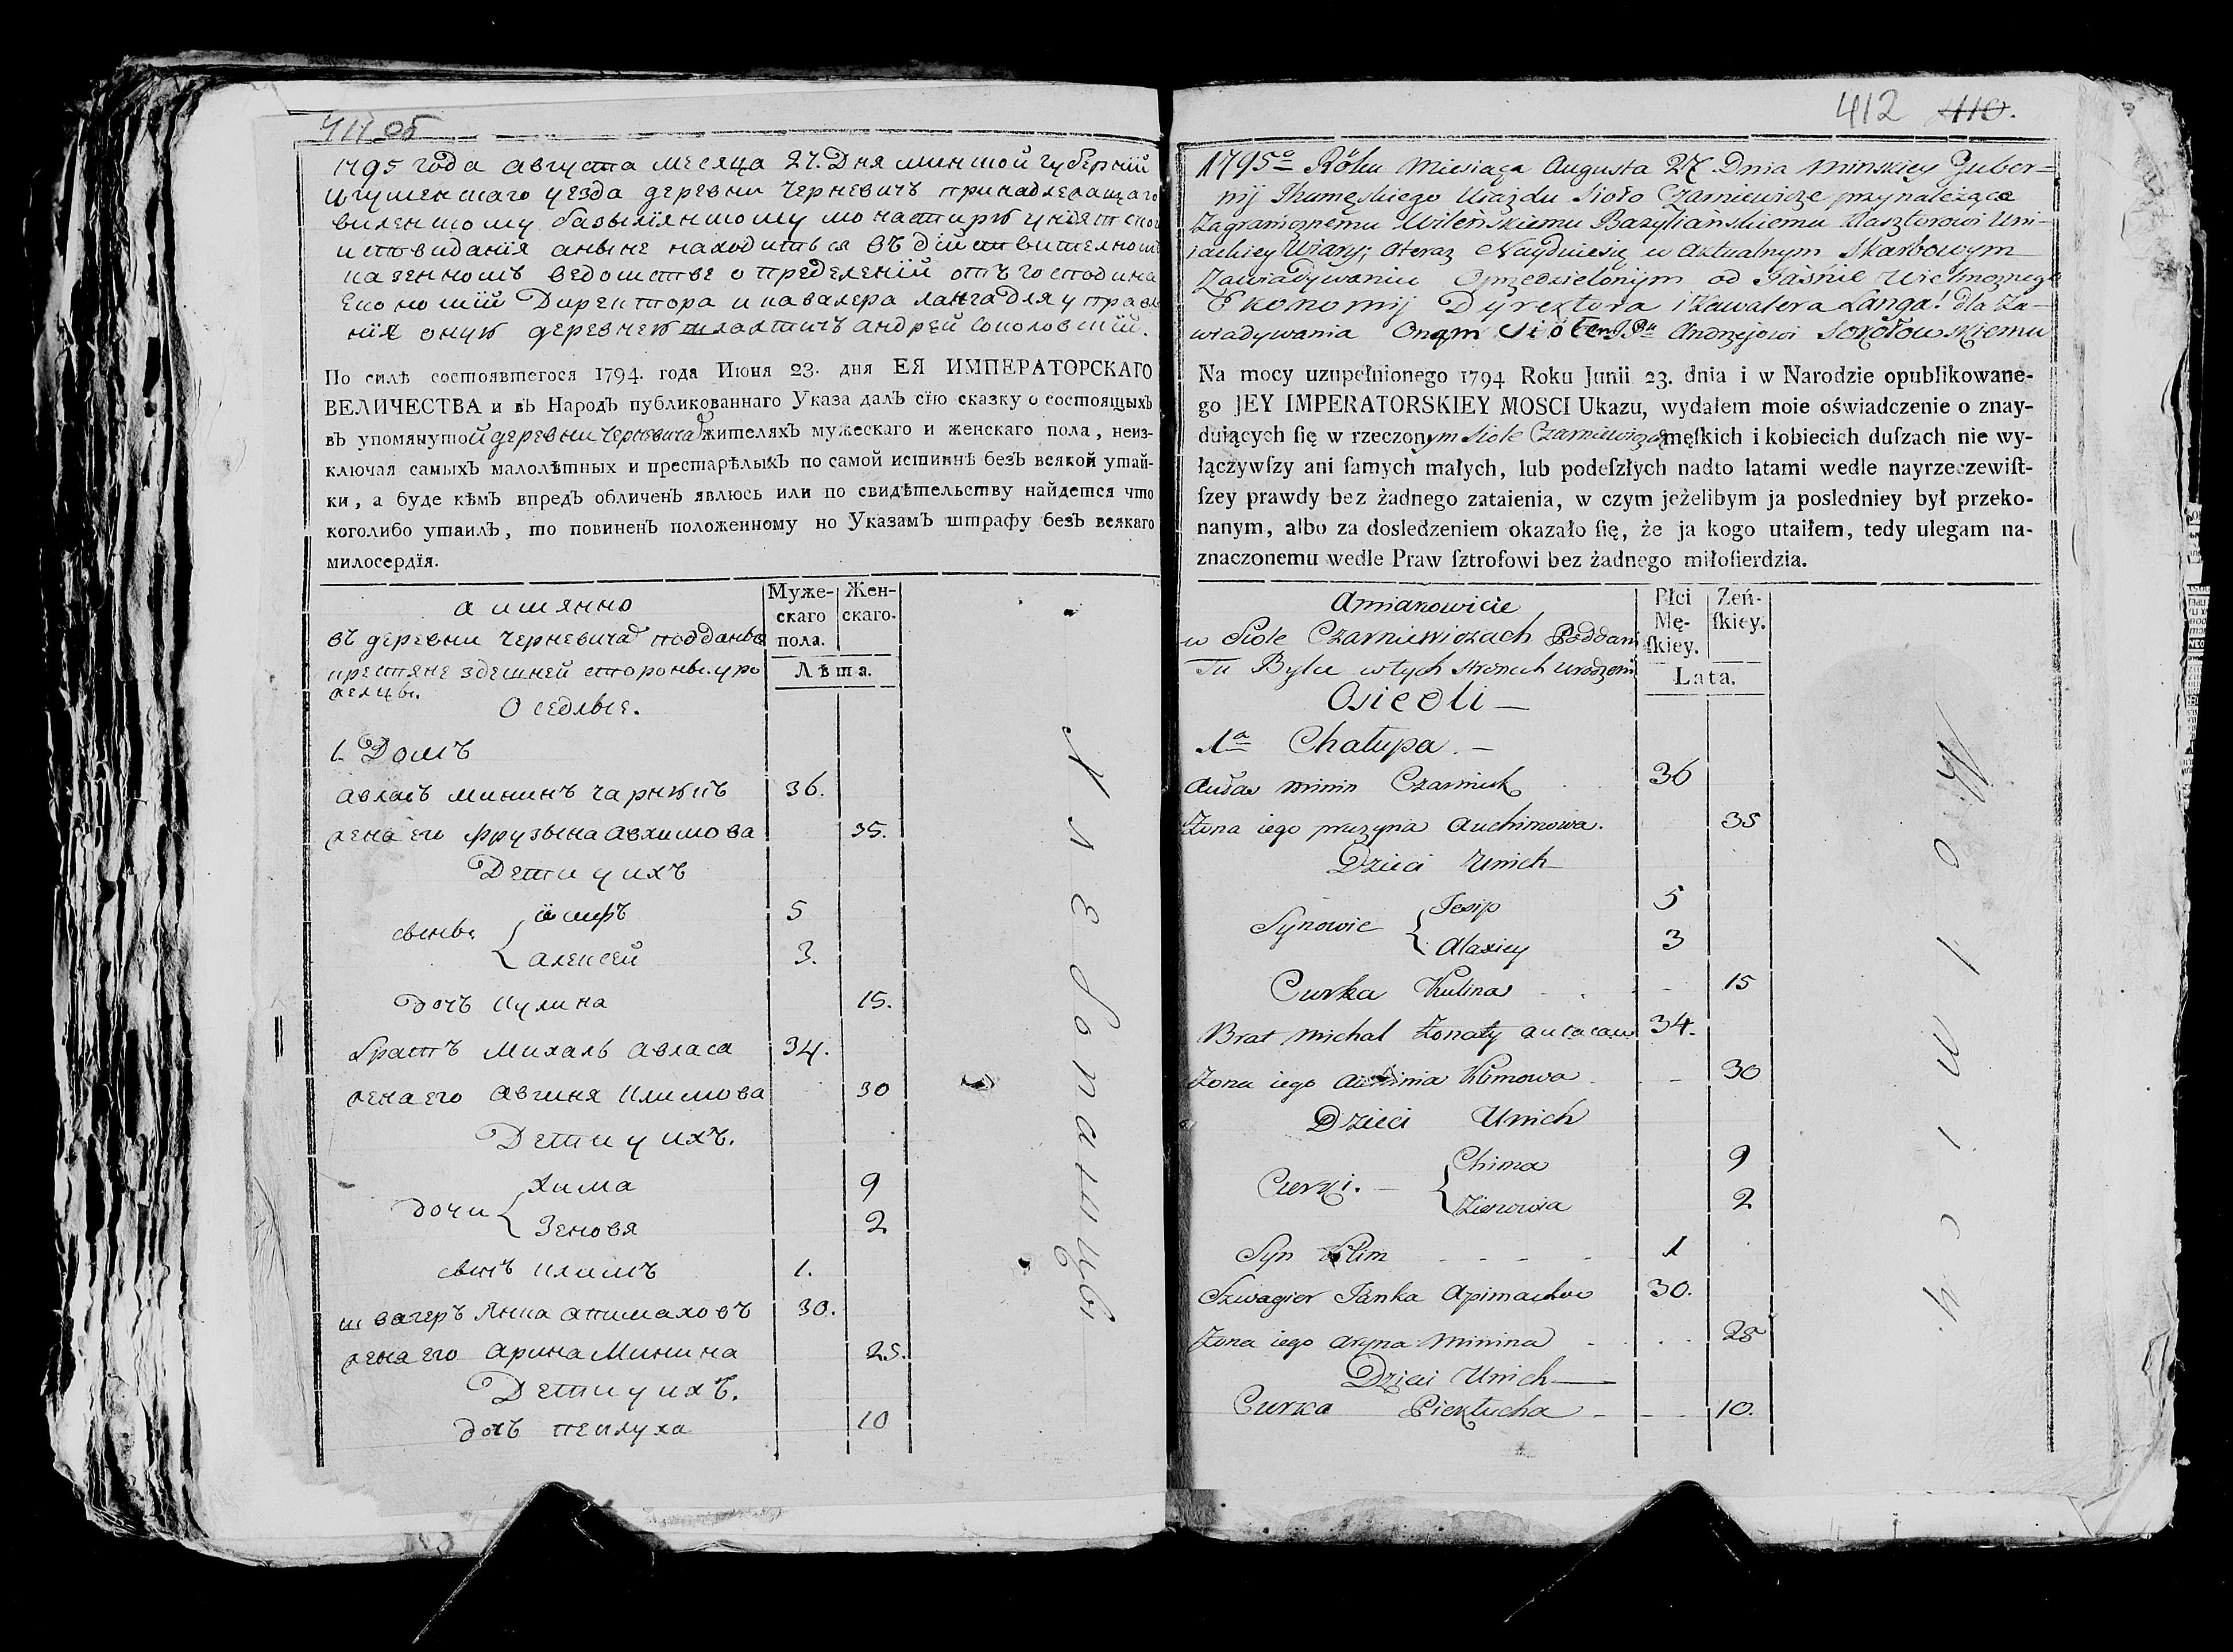 411 об
1795 года августа месяца 27. Дня минской губерній
Игуменскаго уезда деревни Черневичъ принадлежащаго
виленскому базыліянскому монастирю уніятско
исповиданія аныне находиться въ дійствителном
казенномъ ведомстве определеній отъ господина
Економій Директора и кавалера Ланга для управле
нія оную деревнею шляхтичъ андрей соколовскій.
По силѣ состоявшегося 1794. года Июня 23. дня ЕЯ ИМПЕРАТОРСКАГО
ВЕЛИЧЕСТВА и въ Народъ публикованнаго Указа далъ сїю сказку о состоящыхъ
въ упомянутой деревни Черневича жителяхъ мужескаго и женскаго пола, неиз-
ключая самыхъ малолѣтныхъ и престарѣлыхъ по самой истиннѣ безъ всякой утай-
ки, а буде кѣмъ впредъ обличенъ явлюсь или по свидѣтельству найдется что
коголибо утаилъ, то повиненъ положенному по Указамъ штрафу безъ всякаго
милосердїя.
а имянно
въ деревни Черневича подданые
крестяне здешней стороны. уро
женцы.
Оседлые.
Муже-
скаго
пола.
Жен-
скаго.
Лѣта.
1. Домъ
авласъ мининъ чарнюкъ 36.
жена его фрузына авхимова 35.
Дети у ихъ
сыны { іосифъ 5
алексей 3.
дочъ кулина 15.
братъ Михаль авласа 34.
жена его авгиня климова 30
Дети у ихъ.
дочи { хима 9
Зеновя 2
сынъ климъ 1.
швагеръ Янка апимаховъ 30.
жена его арина Минина 25.
Дети у ихъ.
дочъ пеклуха 10
412 410.
1795ª Roku Miesiąca Augusta 27 Dnia Minskiey Guber=
nij Ihumęskiego Uiazdu Sioło Czarniewicze przynależące
Zagranicznemu Wileńskiemu Bazyliańskiemu Klasztorowi Uni-
iackiey Wiary; ateraz Nayduiesię w aktualnym Skarbowym
Zawiadywaniu Oprzedzielonijm od Jaśnie Wielmoznego
Ekonomij Dyrektora i Kawalera Langa! dla Za-
wiadywania Onym Siołem Andrzejowi Sokołowskiemu
Na mocy uzupełnionego 1794 Roku Junii 23. dnia i w Narodzie opublikowane-
go JEY IMPERATORSKIEY MOSCI Ukazu, wydałem moie oświadczenie o znay-
duiących ſię w rzeczonym Siole Czarniewiczach męſkich i kobiecich duſzach nie wy-
łączywſzy ani ſamych małych, lub podeſzłych nadto latami wedle nayrzeczewiſt-
ſzey prawdy bez żadnego zataienia, w czym jeżelibym ja posledniey był przeko-
nanym, albo za dosledzeniem okazało ſię, że ja kogo utaiłem, tedy ulegam na-
znaczonemu wedle Praw ſztrofowi bez żadnego miłoſierdzia.
Amianowicie
w Siole Czarniewiczach Poddani
Tu Bylce wtych stronach urodzeni
Osiedli —
Płci
Mę-
ſkiey.
Zeń-
ſkiey.
Lata.
1ª Chałupa. —
Audas Minin Czarniuk 36
Żona iego pruzyna Auchimowa. 35
Dzieci Unich
Synowie { Jesip 5
Alaxiey 3
Curka Kulina 15
Brat Michal Żonaty 34.
Żona iego Klimowa 30
Dzieci Unich
Curki. { Chima 9
Zienowia 2
Syn Klim 1
Szwagier Janka Apimachow 30.
Żona iego Aryna Minina 25
Dzieci Unich
Curka Piekłucha 10.